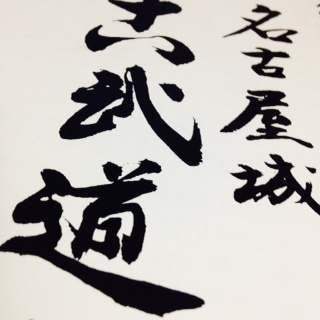 名古屋城
古武道